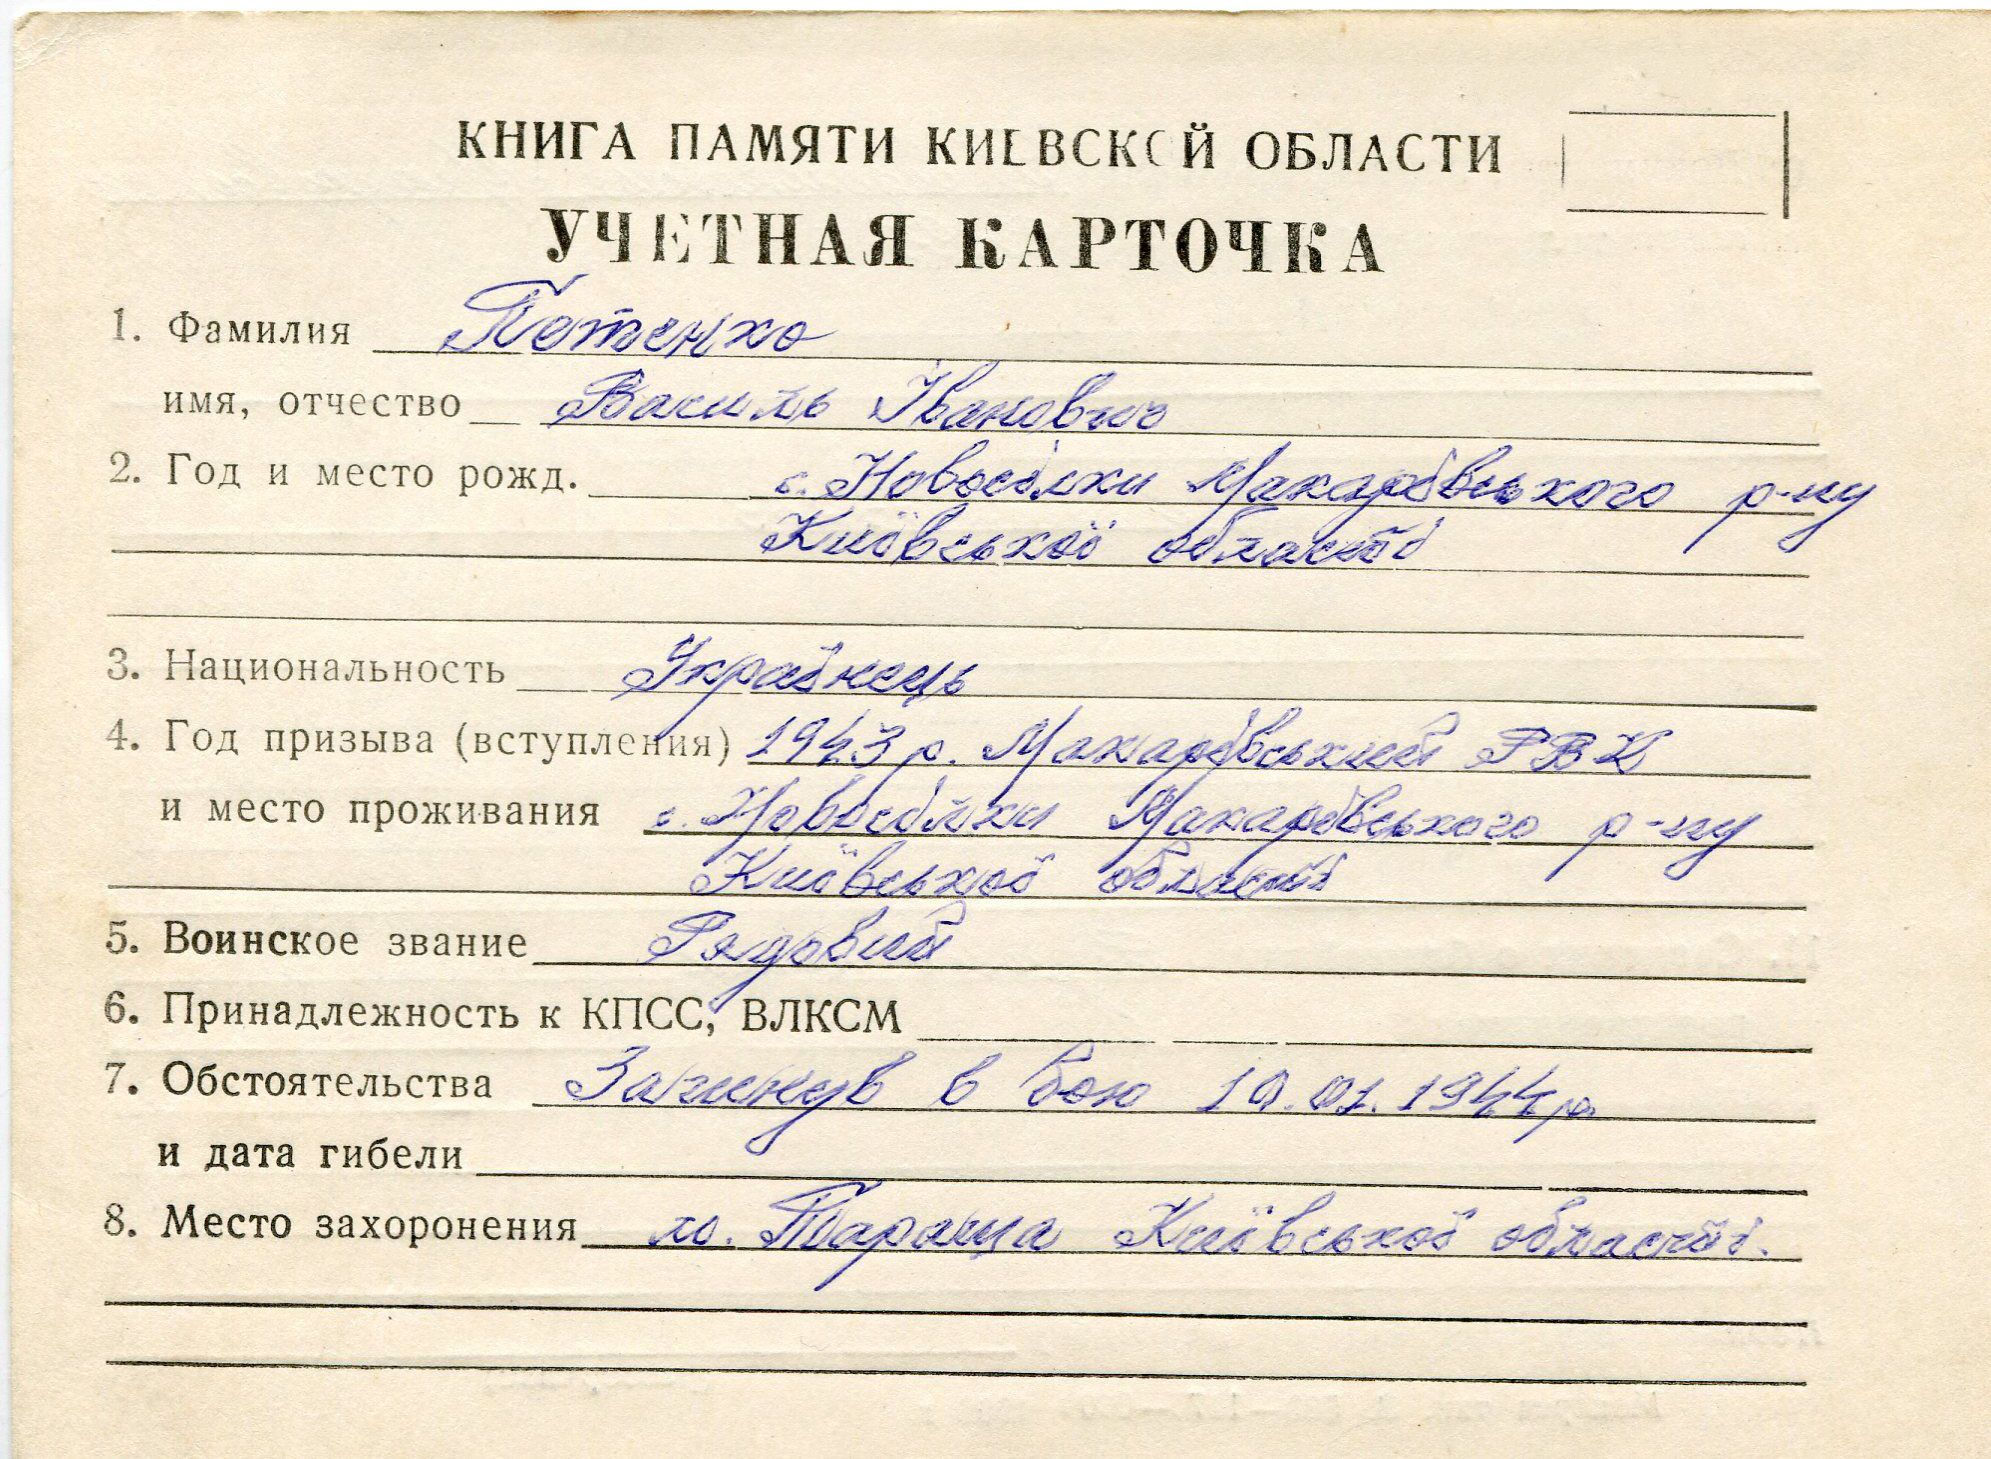 КНИГА ПАМЯТИ КИЕВСКОЙ ОБЛАСТИ
УЧЕТНАЯ КАРТОЧКА
1. Фамилия Потенко
имя, отчество Василь Іванович
2. Год и место рожд. с. Новосілки Макарівського р-ну
Київської області
3. Национальность Українець
4. Год призыва (вступления) 1943 р. Макарівський РВК
и место проживания с. Новосілки Макарівського р-ну
Київської області
5. Воинское звание Рядовий
6. Принадлежность к КПСС, ВЛКСМ
7. Обстоятельства Загинув в бою 10.01.1944 р.
и дата гибели
8. Место захоронения м. Тараща Київської області.